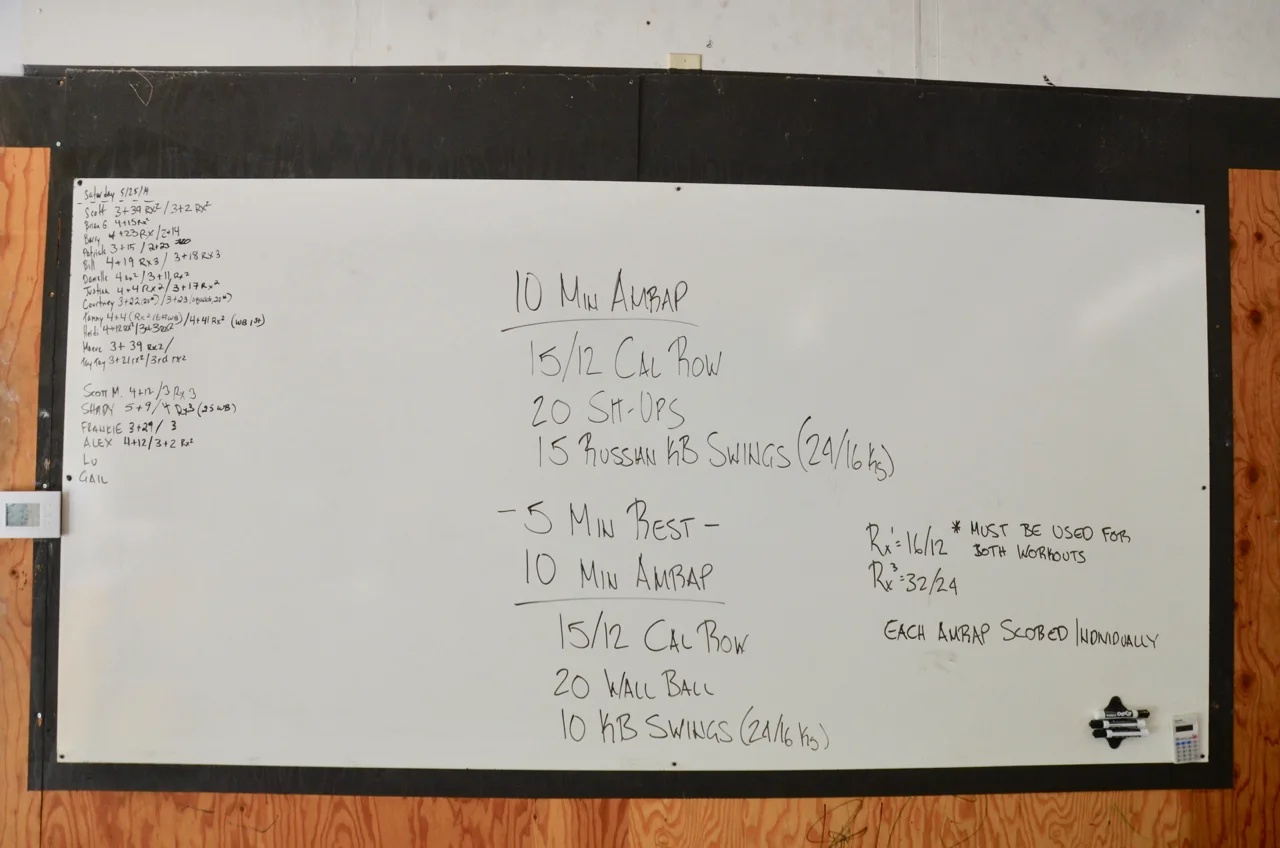 Saturday 5/25/14
Scott 3+39 Rx² / 3+2 Rx²
Brian G 4+15 Rx²
Barry 4+23 Rx / 2+14
Patrick 3+15 / 2+23
Bill 4+19 Rx3 / 3+18 Rx3
Danielle 4 Rx² / 3+11 Rx²
Justian 4+4 Rx2 / 3+17 Rx²
Courtney 3+22 (20#) / 3+23
Tammy 4+4 (Rx² 16# WB) / 4+41 Rx² (WB 1st)
Heidi 4+12 Rx² / 3+3 Rx²
3+39 Rx2 /
Tay Tay 3+21 rx² / 3rd rx2
Scott M. 4+12 / 3 Rx 3
SHADY 5+9 / 4 Rx³ (25 WB)
FRANKIE 3+29 / 3
ALEX 4+12 / 3+2 Rx²
LU
GAIL
10 MIN AMRAP
15/12 CAL ROW
20 SIT-UPS
15 RUSSIAN KB SWINGS (24/16 Kg)
- 5 MIN REST -
10 MIN AMRAP
15/12 CAL ROW
20 WALL BALL
10 KB SWINGS (24/16 Kg)
Rx¹=16/12 * MUST BE USED FOR
BOTH WORKOUTS
Rx³=32/24
EACH AMRAP SCORED INDIVIDUALLY